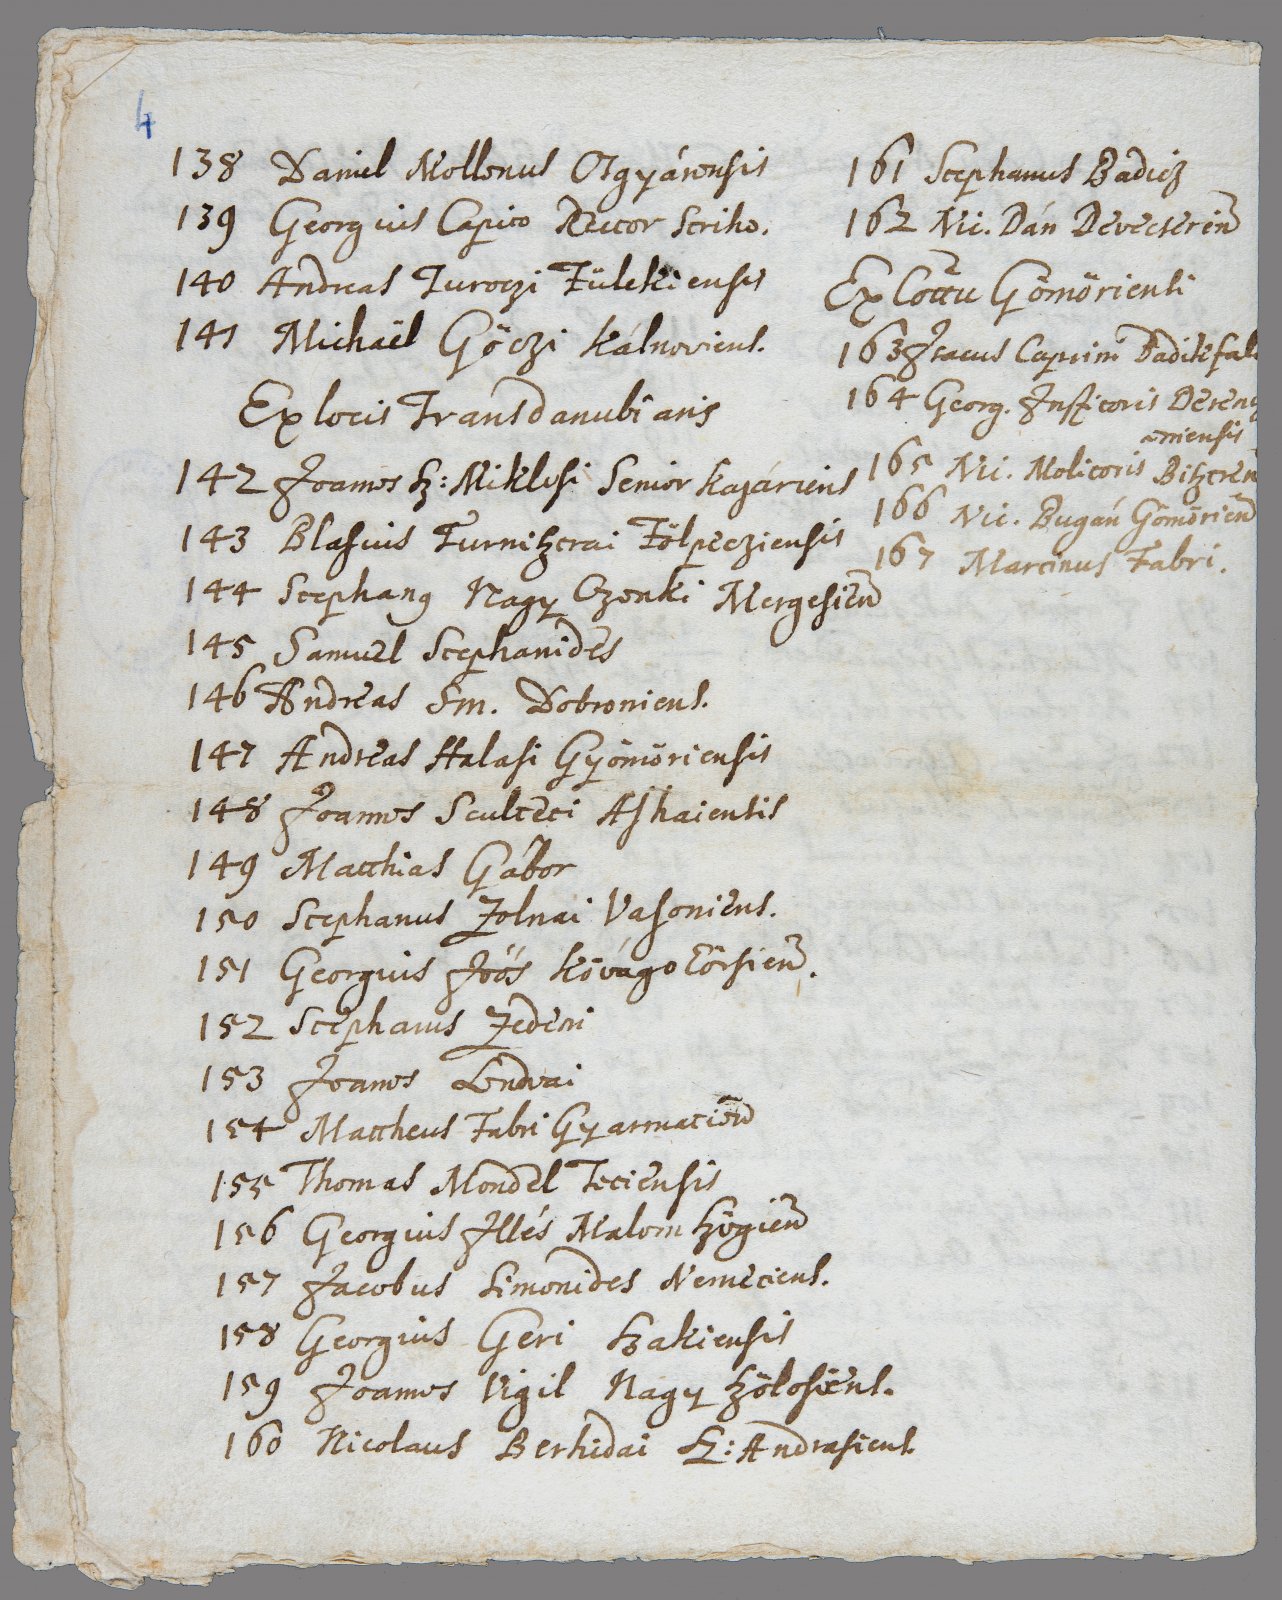 4
138 Daniel Mollerus Osgyánensis
139 Georgius Capito Rector Scriho.
140 Andreas Turoczi Fülekiensis
141 Michaël Göczi Kálnoviens.
Ex locis Transdanubianis
142 Joannes Sz: Miklosi Senior Kajáriens
143 Blasius Furnitzerai Fölpecziensis
144 Stephanus Nagy Czenki Mergesien
145 Samuel Stephanides
146 Andreas Sm. Dobroniens.
147 Andreas Halasi Gyömöriensis
148 Joannes Sculteti Ashaiensis
149 Matthias Gábor
150 Stephanus Zolnai Vasoniens.
151 Georgius Joós Kövágo Eörsien.
152 Stephanus Zederi
153 Joannes Lendvai
154 Mattheus Fabri Gyarmatien
155 Thomas Mondel Teciensis
156 Georgius Illés Malom Szögien
157 Jacobus Simonides Nemeciens.
158 Georgius Geri Szakiensis
159 Joannes Vigil Nagy Szölosiens.
160 Nicolaus Berhidai Sz: Andrasiens.
161 Stephanus Badicz
162 Nic. Dán Devecserien
Ex Cottu Gömöriensi
163 Isacus Caprini Daditifal
164 Georg. Institoris Derencs
eniensis
165 Nic. Molitoris Bisztren
166 Nic. Bugán Gömörien
167 Martinus Fabri.